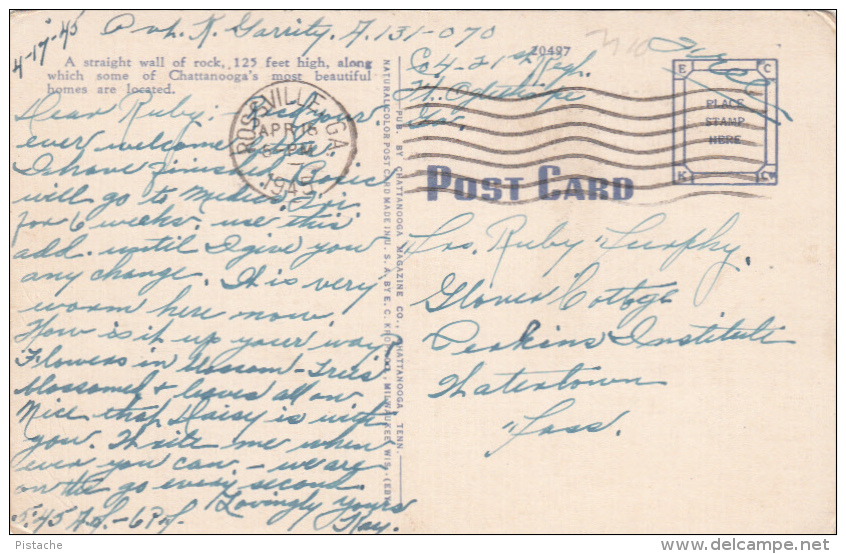 4-17-45
Pvt. K. Garrity, A.131-070
20497
Co 4 - 21st Regt.
Ft. Oglethorpe
Ga.
Free
A straight wall of rock, 125 feet high, along
which some of Chattanooga's most beautiful
homes are located.
ROSSVILLE, GA.
APR 18
PM
1945
E C
PLACE
STAMP
HERE
K CW
POST CARD
PUB. BY CHATTANOOGA MAGAZINE CO., CHATTANOOGA TENN.
NATURAL COLOR POST CARD MADE IN U. S. A. BY E. C. KROPP CO., MILWAUKEE, WIS. (EB)
Dear Ruby: Rec'd your
ever welcome
I have finished Basic
will go to Medics, Fri
for 6 weeks. use this
add. until I give you
any change. It is very
warm here now.
How is it up your way
Flowers in blossom - Trees
blossomed & leaves all on
Nice that Daisy is with
you. Write me when
ever you can, - we are
on the go every second
Lovingly yours
5:45 A.M. - 6 P.M.
Kay.
Mrs. Ruby Murphy,
Glover Cottage
Perkins Institute
Watertown
Mass.
Pistache
www.delcampe.net